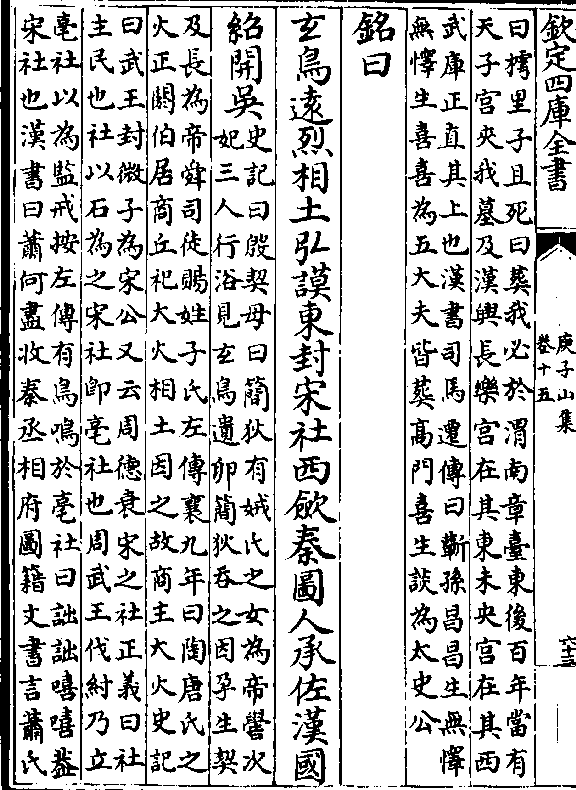 欽定四庫全書
庾子山集
卷十五
六十三
曰樗里子且死曰葬我必於渭南章臺東後百年當有
天子宮夾我墓及漢興長樂宮在其東未央宮在其西
武庫正直其上也漢書司馬遷傳曰蘄孫昌昌生無懌
無懌生喜喜為五大夫皆葬高門喜生談為太史公
銘曰
玄鳥遠烈相土弘謨東封宋社西斂秦圖人承佐漢國
紹開吳
史記曰殷契母曰簡狄有娀氏之女為帝嚳次
妃三人行浴見玄鳥遺卵簡狄吞之因孕生契
及長為帝舜司徒賜姓子氏左傳襄九年曰陶唐氏之
火正閼伯居商丘祀大火相土因之故商主大火史記
曰武王封微子為宋公又云周德衰宋之社正義曰社
主民也社以石為之宋社即亳社也周武王伐紂乃立
亳社以為監戒按左傳有鳥鳴於亳社曰詘詘嘻嘻葢
宋社也漢書曰蕭何盡收秦丞相府圖籍文書言蕭氏